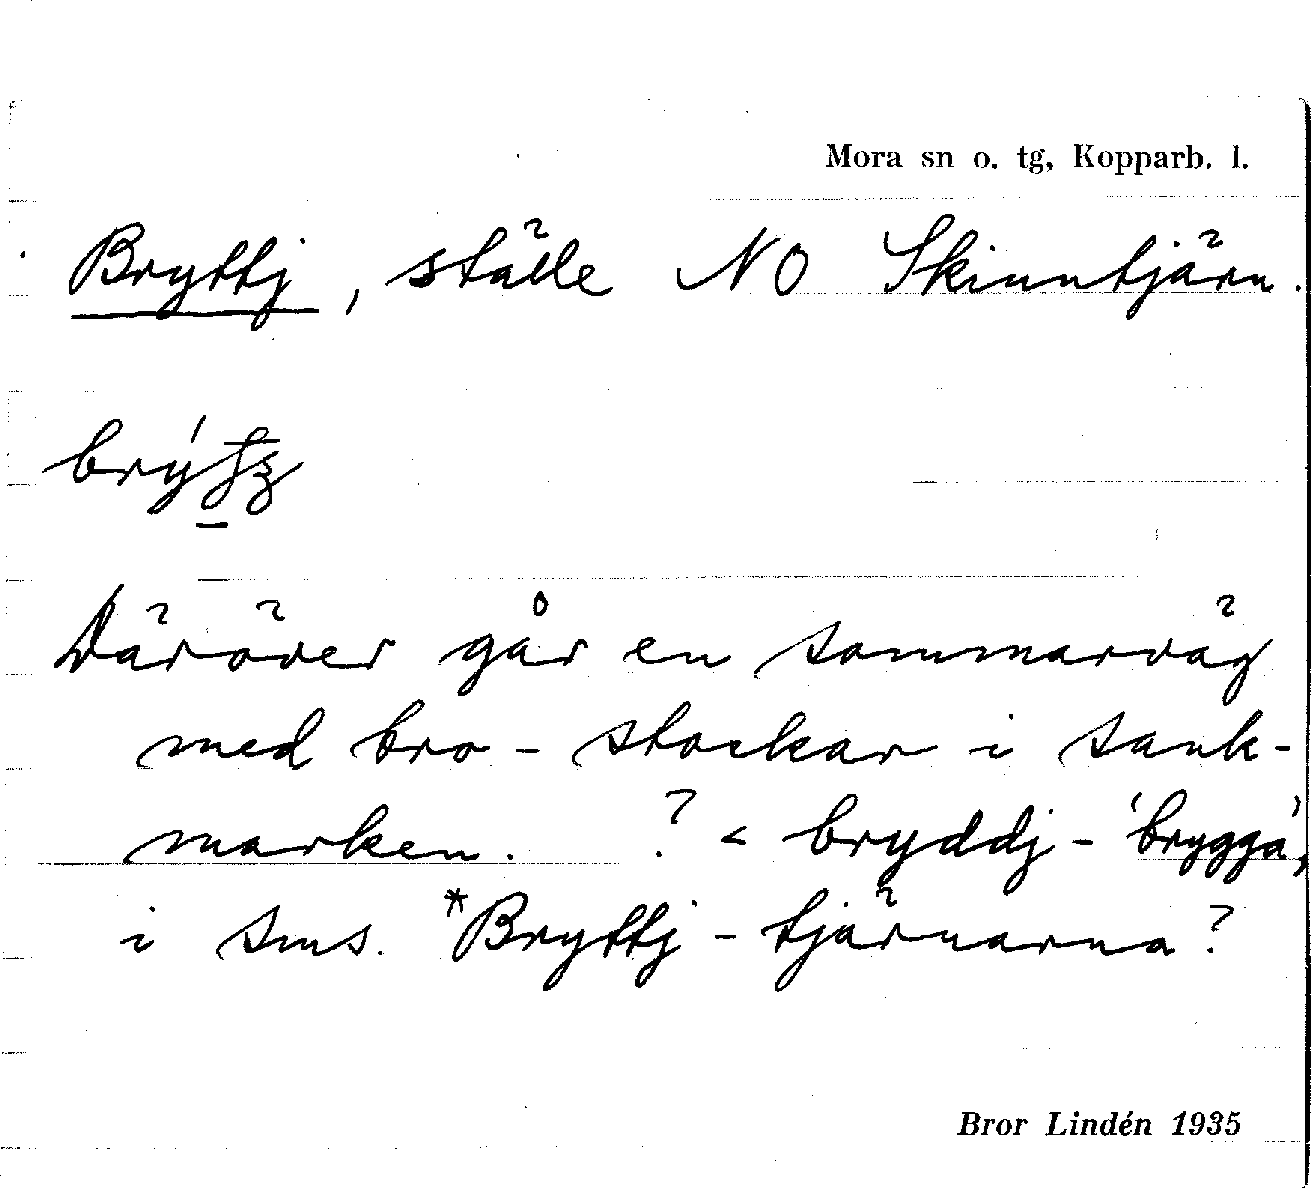 Mora sn o. tg, Kopparb. l.
Bryttj, ställe NO Skinntjärn.
Däröver går en sommarväg
med bro-stockar i sank-
marken. ? < bryddj- 'brygga',
i sms. *Bryttj-tjärnarna?
Bror Lindén 1935